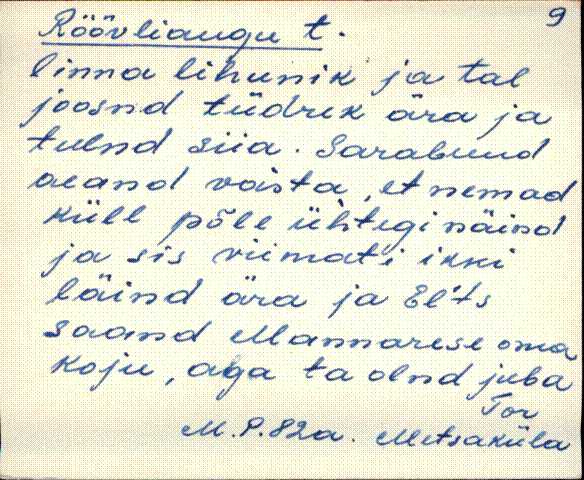 9
Röövliaugu t.
linna lihunik ja tal
joosnd tüdrek ära ja
tulnd siia. Sarabuud
aeand vasta, et nemad
küll põle ühtegi näind
ja sis viimati ikki
läind ära ja El'ts
saand Mannarese oma
koju, aga ta olnd juba
Tor
M. P. 82 a. Metsaküla